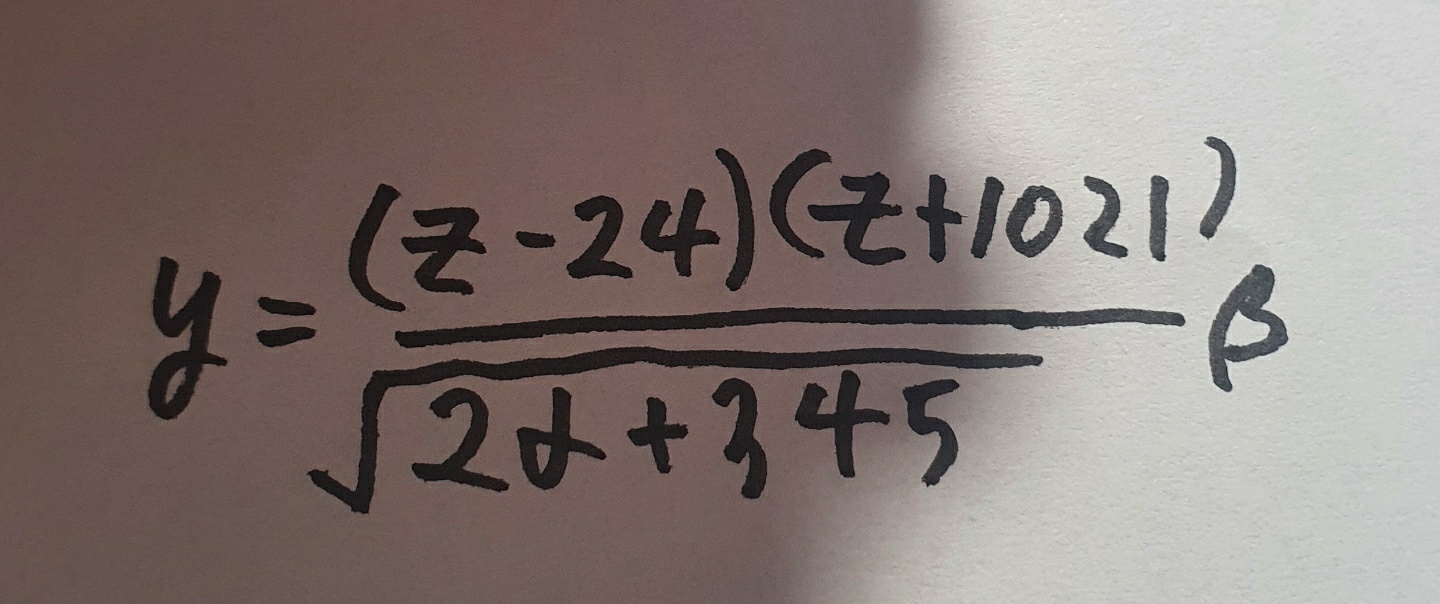 y = \frac{(z-24)(z+1021)}{\sqrt{2\alpha+345}} β